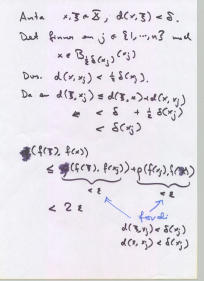 Anta x, ξ ∈ X, d(x, ξ) < δ.
Det finnes en j ∈ {1, ..., n} med
x ∈ B_{½δ(x_j)}(x_j)
Dvs. d(x, x_j) < ½ δ(x_j).
Da er d(ξ, x_j) ≤ d(ξ, x) + d(x, x_j)
< δ + ½ δ(x_j)
< δ(x_j)
(f(ξ), f(x))
≤ (f(ξ), f(x_j)) + ρ(f(x_j), f(x))
< ε < ε
< 2 ε
fordi
d(ξ, x_j) < δ(x_j)
d(x, x_j) < δ(x_j)